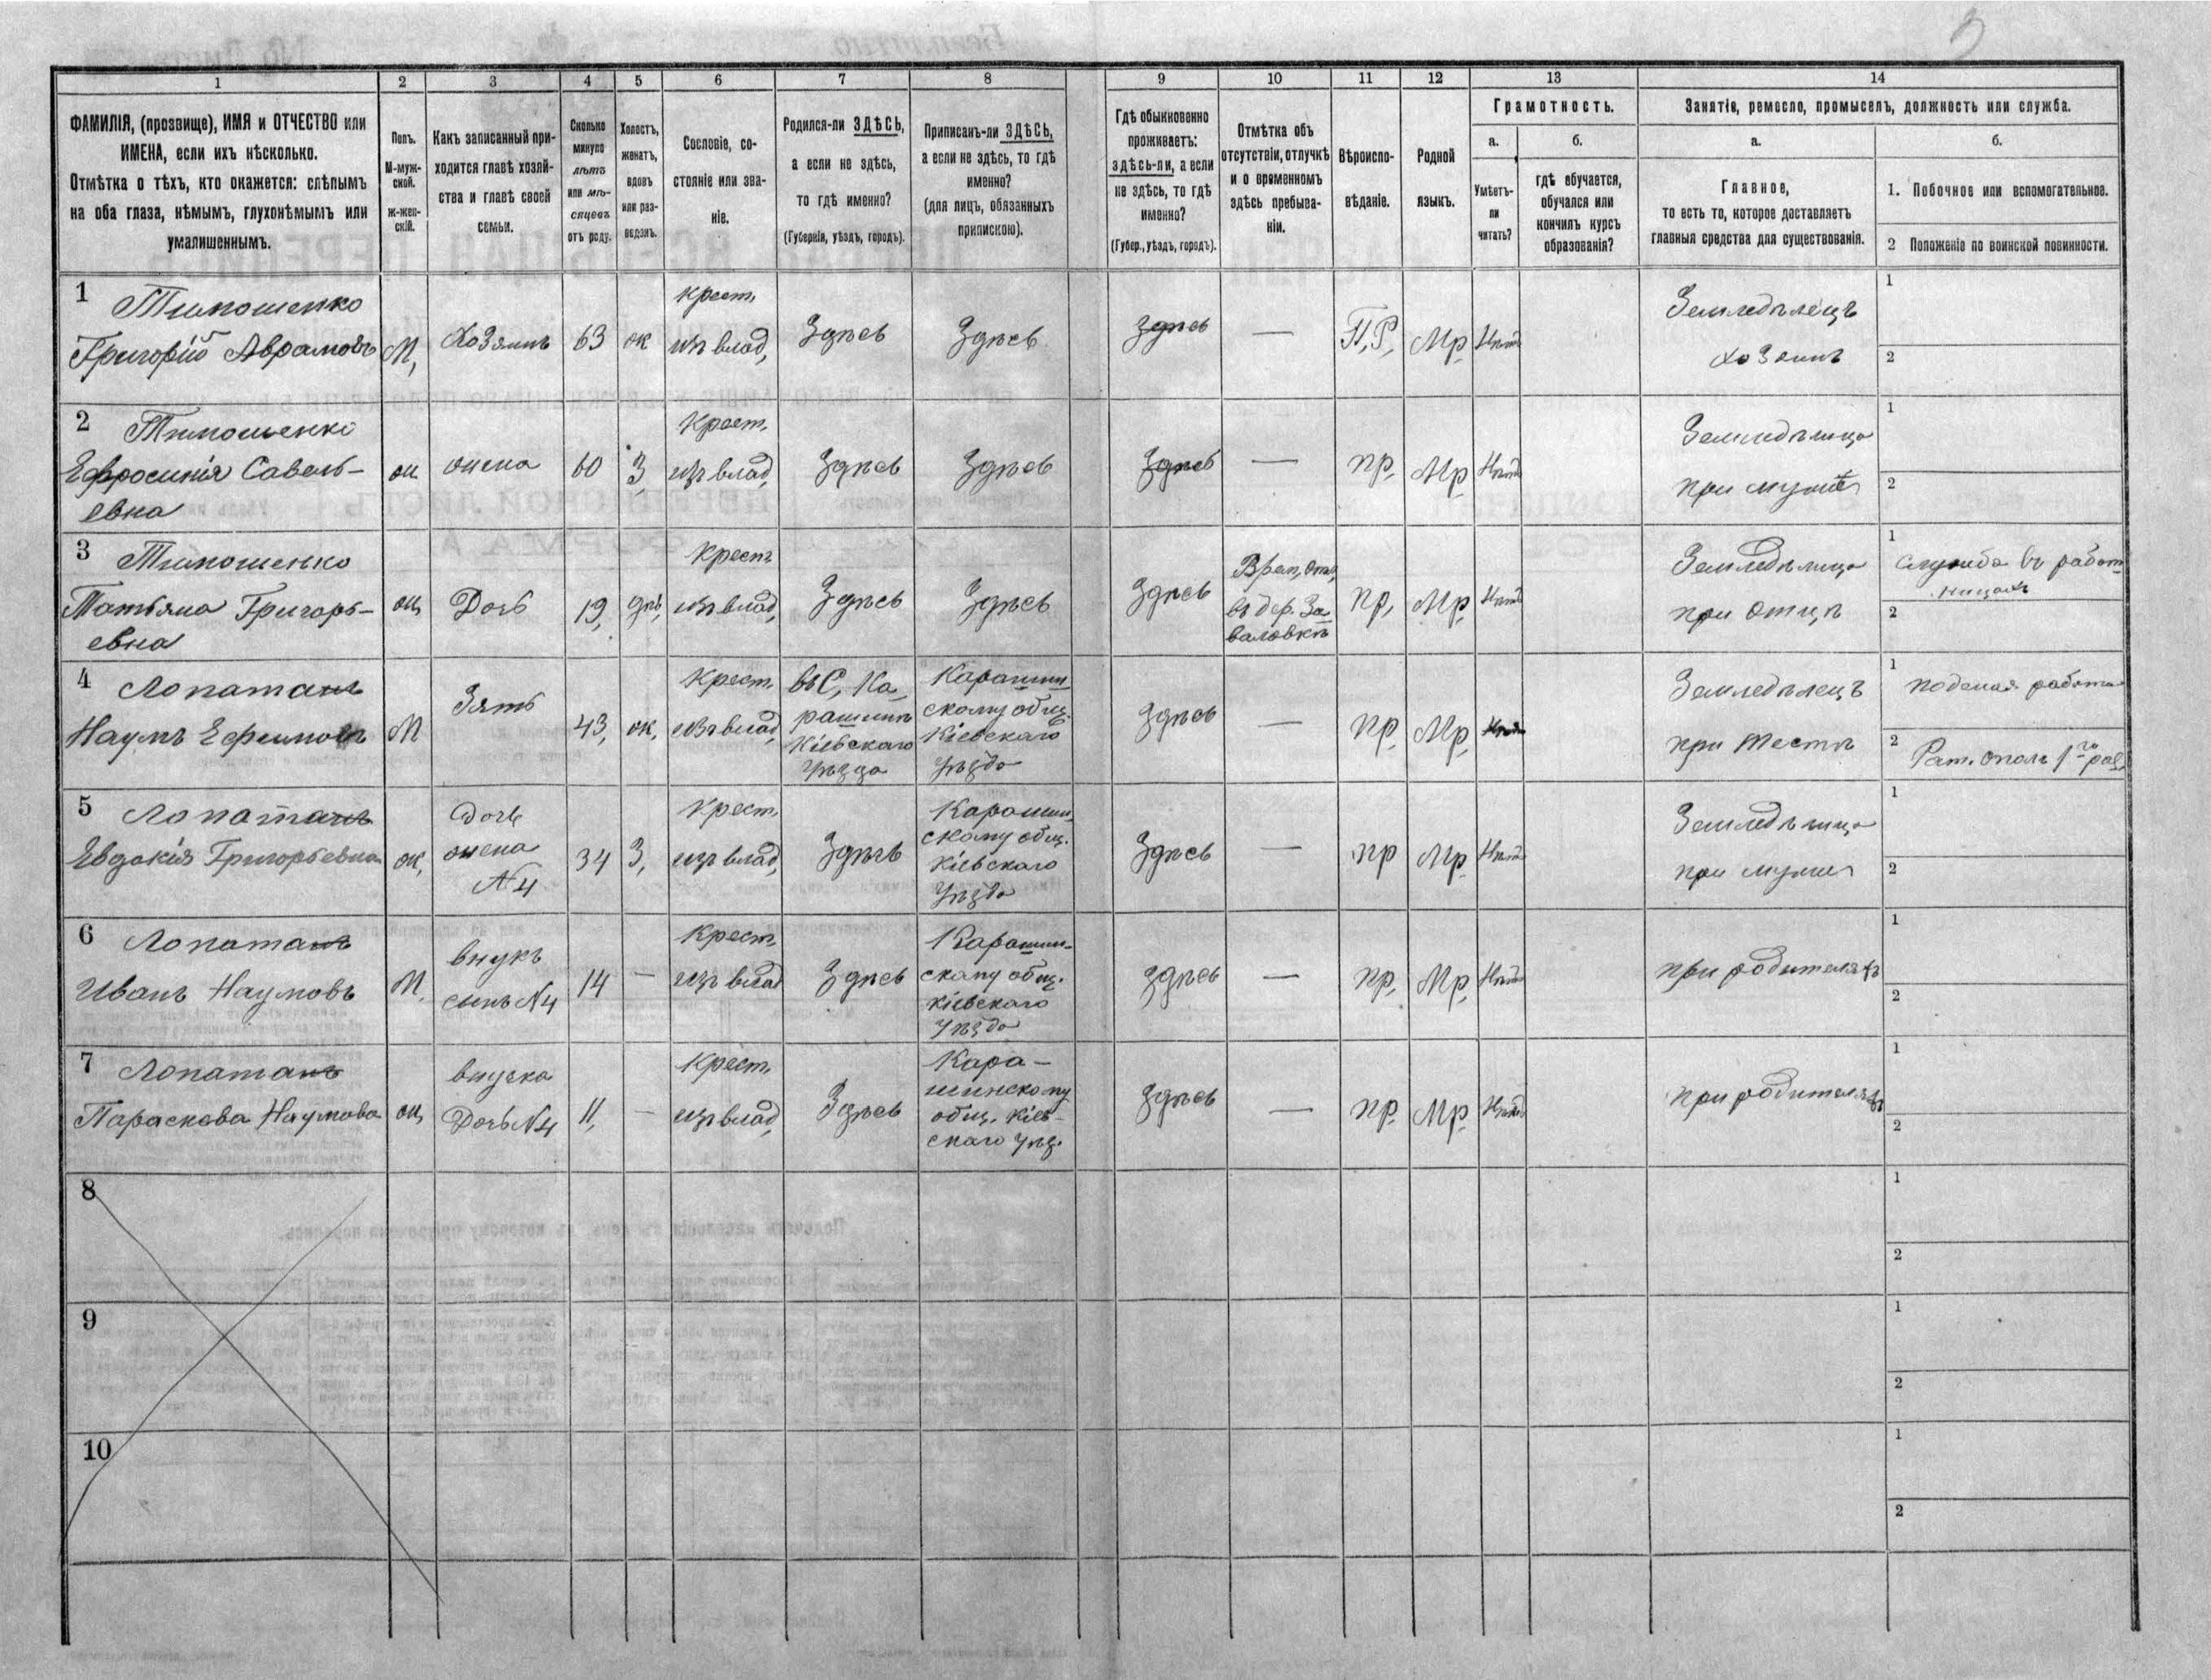 3
1 2 3 4 5 6 7 8 9 10 11 12 13 14
ФАМИЛІЯ, (прозвище), ИМЯ и ОТЧЕСТВО или
ИМЕНА, если ихъ нѣсколько.
Отмѣтка о тѣхъ, кто окажется: слѣпымъ
на оба глаза, нѣмымъ, глухонѣмымъ или
умалишеннымъ.
Полъ.
М-муж-
ской.
Ж-жен-
скій.
Какъ записанный при-
ходится главѣ хозяй-
ства и главѣ своей
семьи.
Сколько
минуло
лѣтъ
или мѣ-
сяцевъ
отъ роду.
Холостъ,
женатъ,
вдовъ
или раз-
веденъ.
Сословіе, со-
стояніе или зва-
ніе.
Родился-ли ЗДѢСЬ,
а если не здѣсь,
то гдѣ именно?
(Губернія, уѣздъ, городъ).
Приписанъ-ли ЗДѢСЬ,
а если не здѣсь, то гдѣ
именно?
(для лицъ, обязанныхъ
припискою).
Гдѣ обыкновенно
проживаетъ:
здѣсь-ли, а если
не здѣсь, то гдѣ
именно?
(Губер., уѣздъ, городъ).
Отмѣтка объ
отсутствіи, отлучкѣ
и о временномъ
здѣсь пребыва-
ніи.
Вѣроиспо-
вѣданіе.
Родной
языкъ.
Грамотность.
а.
Умѣетъ-
ли
читать?
б.
гдѣ обучается,
обучался или
кончилъ курсъ
образованія?
Занятіе, ремесло, промыселъ, должность или служба.
а.
Главное,
то есть то, которое доставляетъ
главныя средства для существованія.
б.
1. Побочное или вспомогательное.
2 Положеніе по воинской повинности.
1 Тимошенко
Григорій Аврамовъ
М,
Хозяинъ
63
ж
крест,
изъ влад,
Здѣсь
Здѣсь
Здѣсь
—
П,Р,
Мр,
Нѣтъ
Земледѣлецъ
хозяинъ
1
2
2 Тимошенко
Ефросинія Савель-
евна
ж
жена
60
З,
Крест,
изъ влад,
Здѣсь
Здѣсь
Здѣсь
—
пр,
Мр,
Нѣтъ
Земледѣлица
при мужѣ
1
2
3 Тимошенко
Татьяна Григорь-
евна
ж
Дочь
19,
дѣ,
крест,
изъ влад,
Здѣсь
Здѣсь
Здѣсь
въ дер. За
валовкѣ
пр,
Мр,
Нѣтъ
Земледѣлица
при отцѣ
1 служба въ работ
ницахъ
2
4 Лопатанъ
Наумъ Ефимовъ
М
Зять
43,
ж,
Крест,
изъ влад,
въ С, Ка
рашинѣ
Кіевскаго
Уѣзда
Карашин
скому общ.
Кіевскаго
Уѣзда
Здѣсь
—
пр,
Мр,
Земледѣлецъ
при тестѣ
1 поденая работа
2 Рат. Опол. 1го раз,
5 Лопатанъ
Евдокія Григорьевна
ж,
Дочь
жена
№4
34
З,
Крест,
изъ влад,
Здѣсь
Карашин-
скому общ.
Кіевскаго
Уѣзда
Здѣсь
—
пр
Мр,
Нѣтъ
Земледѣлица
при мужѣ
1
2
6 Лопатанъ
Иванъ Наумовъ
М,
внукъ
сынъ №4
14
—
Крест,
изъ влад
Здѣсь
Карашин-
скому общ.
Кіевскаго
Уѣзда
Здѣсь
—
пр,
Мр,
Нѣтъ
при родителяхъ
1
2
7 Лопатанъ
Параскева Наумова
ж
внучка
Дочь №4
11,
—
Крест,
изъ влад,
Здѣсь
Кара-
шинскому
общ. Кіев-
скаго Уѣз.
Здѣсь
—
пр,
Мр,
Нѣтъ
при родителяхъ
1
2
8
1
2
9
1
2
10
1
2